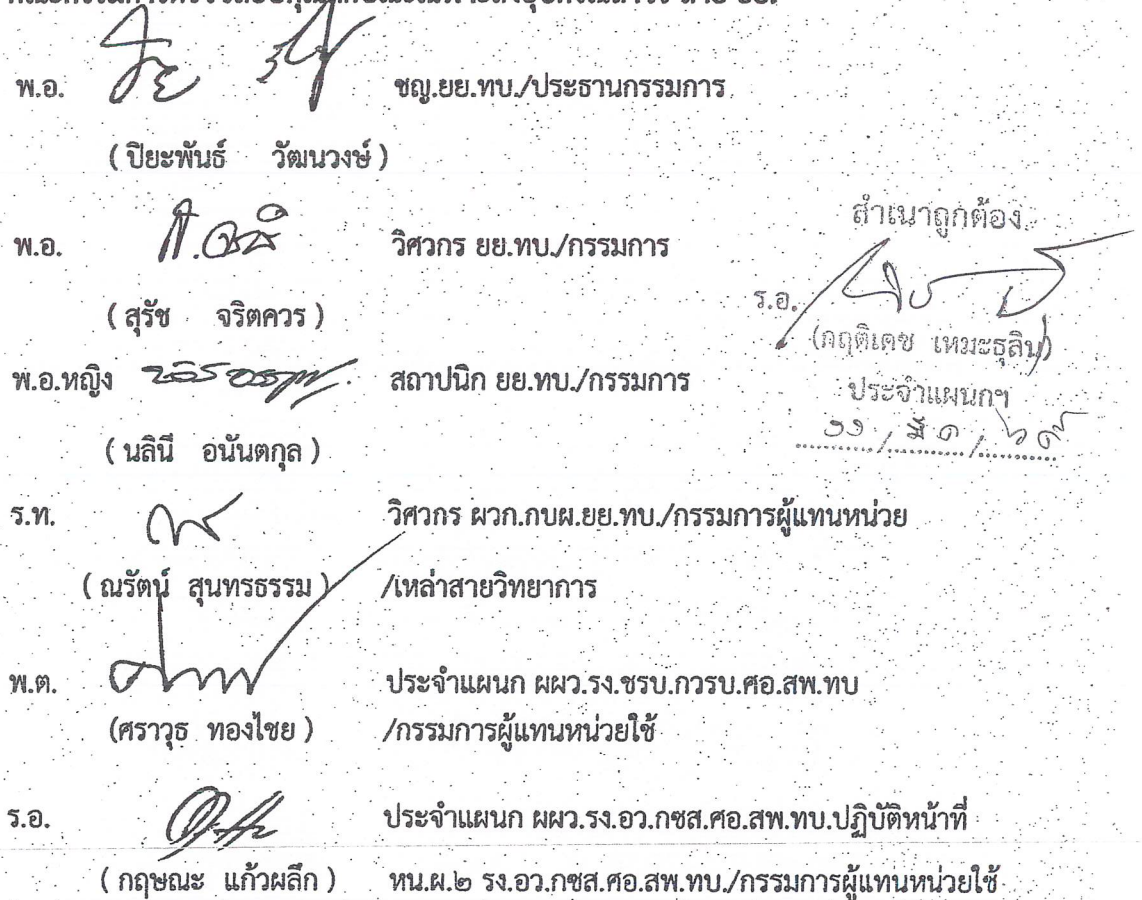 พ.อ. ชญ.ยย.ทบ./ประธานกรรมการ
( ปิยะพันธ์ วัฒนวงษ์ )
พ.อ. วิศวกร ยย.ทบ./กรรมการ
( สุรัช จริตควร )
พ.อ.หญิง สถาปนิก ยย.ทบ./กรรมการ
( นลินี อนันตกุล )
ร.ท. วิศวกร ผวก.กบผ.ยย.ทบ./กรรมการผู้แทนหน่วย
( ณรัตน์ สุนทรธรรม ) /เหล่าสายวิทยาการ
พ.ต. ประจำแผนก ผผว.รง.ซรบ.กวรบ.ศอ.สพ.ทบ
(ศราวุธ ทองไชย ) /กรรมการผู้แทนหน่วยใช้
ร.อ. ประจำแผนก ผผว.รง.อว.กซส.ศอ.สพ.ทบ.ปฏิบัติหน้าที่
( กฤษณะ แก้วผลึก ) หน.ผ.๒ รง.อว.กซส.ศอ.สพ.ทบ./กรรมการผู้แทนหน่วยใช้
สำเนาถูกต้อง
ร.อ.
(กฤติเดช เหมะธุลิน)
ประจำแผนกฯ